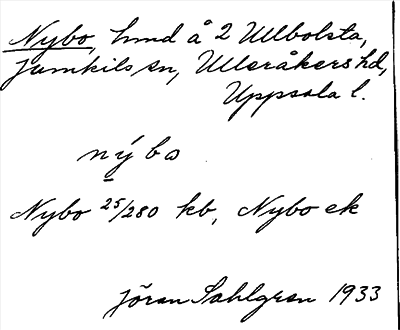 Nybo, hmd å 2 Ullbolsta,
Jumkils sn, Ulleråkers hd,
Uppsala l.
nýbo
Nybo 25/280 kb, Nybo ek
Jöran Sahlgren 1933